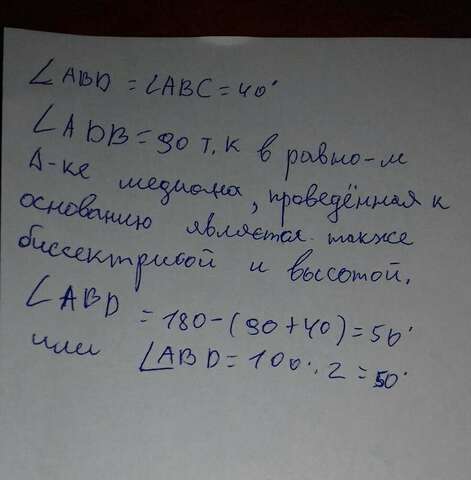 ∠ABD = ∠ABC = 40°
∠ADB = 90 т.к в равно-м
Δ-ке медиана, проведённая к
основанию является также
биссектрисой и высотой.
∠ABD = 180-(90+40)=50°
или ∠ABD = 100:2 = 50°